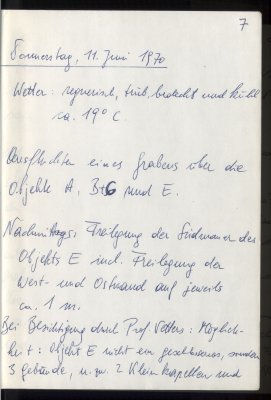 7
Donnerstag, 11. Juni 1970
Wetter: regnerisch, trüb, bedeckt und kühl
ca. 19° C.
eines Grabens über die
Objekte A, B+G und E.
Nachmittags: Freilegung der Südmauer des
Objekts E incl. Freilegung der
West- und Ostwand auf jeweils
ca. 1 m.
Bei Besichtigung durch Prof. Vetters: Möglich-
keit: Objekt E nicht ein geschlossenes, sondern
3 gebäude, u. zw. 2 Kleinkapellen und